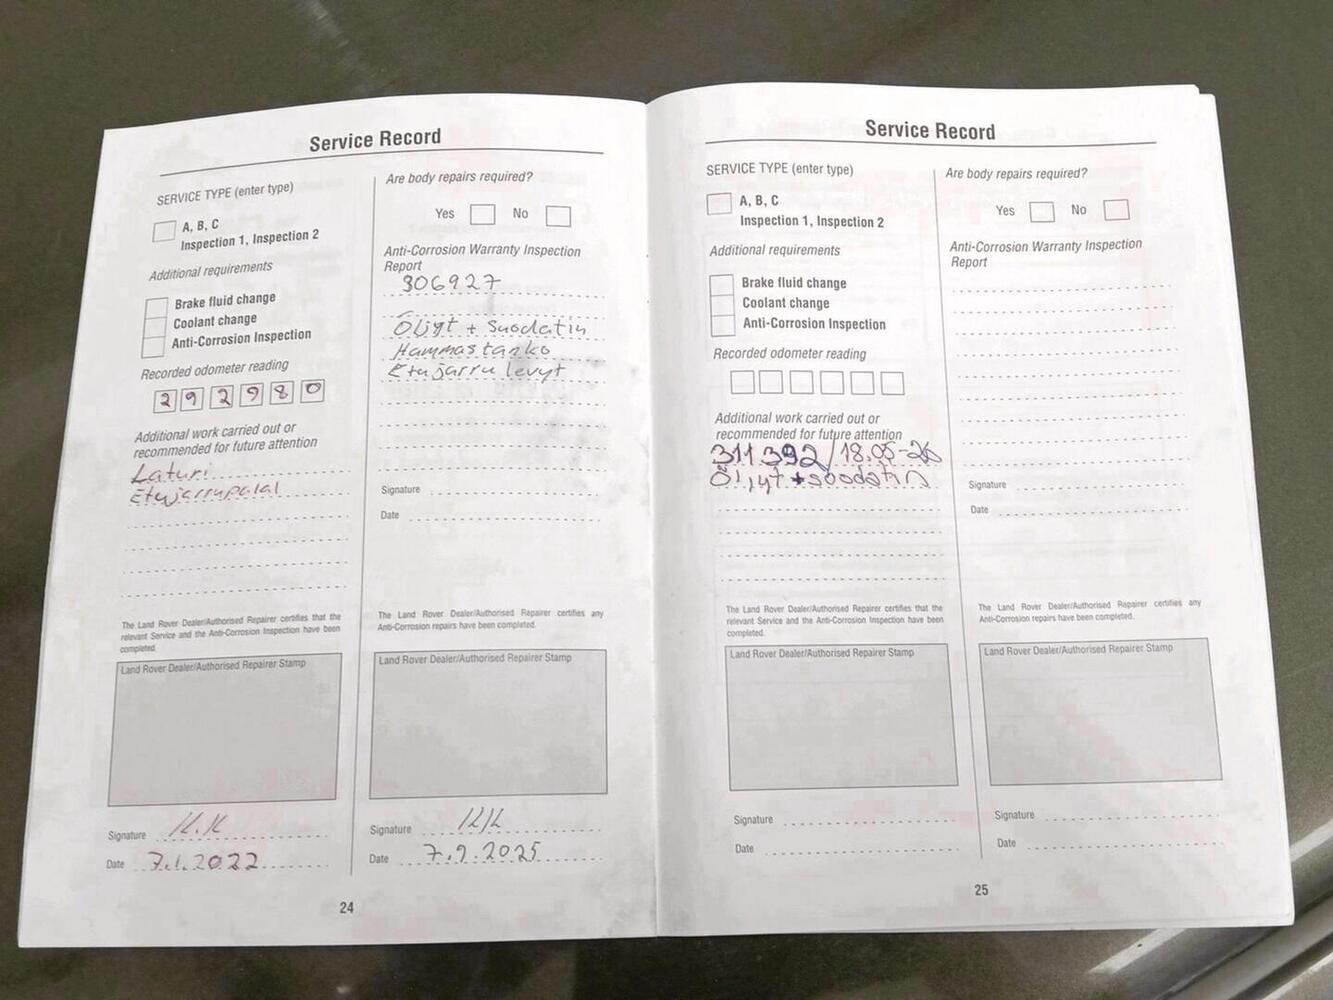 Service Record
SERVICE TYPE (enter type)
A, B, C
Inspection 1, Inspection 2
Additional requirements
Brake fluid change
Coolant change
Anti-Corrosion Inspection
Recorded odometer reading
292980
Additional work carried out or
recommended for future attention
Laturi
Etujarrupalat
The Land Rover Dealer/Authorised Repairer certifies that the
relevant Service and the Anti-Corrosion Inspection have been
completed.
Land Rover Dealer/Authorised Repairer Stamp
Signature K.K
Date 7.1.2022
Are body repairs required?
Yes No
Anti-Corrosion Warranty Inspection
Report
306927
Öljyt + suodatin
Hammastanko
Etujarru levyt
Signature
Date
The Land Rover Dealer/Authorised Repairer certifies any
Anti-Corrosion repairs have been completed.
Land Rover Dealer/Authorised Repairer Stamp
Signature KK
Date 7.9.2025
24
Service Record
SERVICE TYPE (enter type)
A, B, C
Inspection 1, Inspection 2
Additional requirements
Brake fluid change
Coolant change
Anti-Corrosion Inspection
Recorded odometer reading
Additional work carried out or
recommended for future attention
311392/18.05-26
Öljyt + suodatin
The Land Rover Dealer/Authorised Repairer certifies that the
relevant Service and the Anti-Corrosion Inspection have been
completed.
Land Rover Dealer/Authorised Repairer Stamp
Signature
Date
Are body repairs required?
Yes No
Anti-Corrosion Warranty Inspection
Report
Signature
Date
The Land Rover Dealer/Authorised Repairer certifies any
Anti-Corrosion repairs have been completed.
Land Rover Dealer/Authorised Repairer Stamp
Signature
Date
25